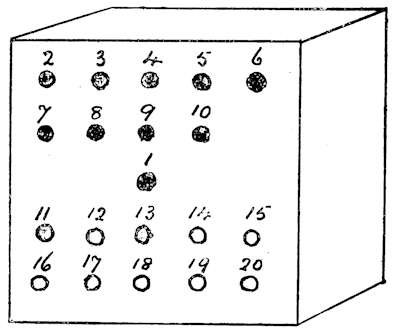 2 3 4 5 6
7 8 9 10
1
11 12 13 14 15
16 17 18 19 20